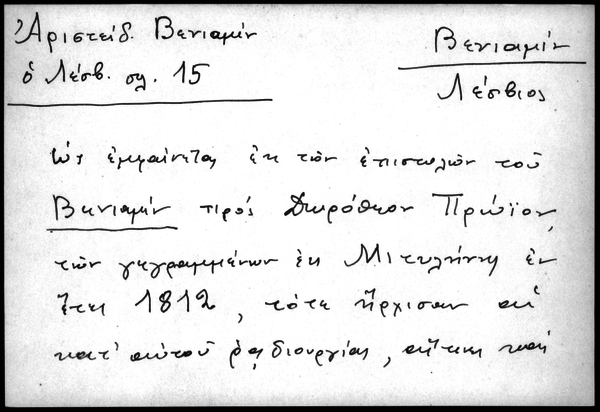 Ἀριστείδ. Βενιαμίν
ὁ Λέσβ. σλ. 15
Βενιαμίν
Λέσβιος
Ὡς ἐμφαίνεται ἐκ τῶν ἐπιστολῶν τοῦ
Βενιαμίν πρός Δωρόθεον Πρώϊον,
τῶν γεγραμμένων ἐκ Μιτυλήνης ἐν
ἔτει 1812, τότε ἤρχισαν αἱ
κατ' αὐτοῦ ῥᾳδιουργίαι, αἵτινες καί